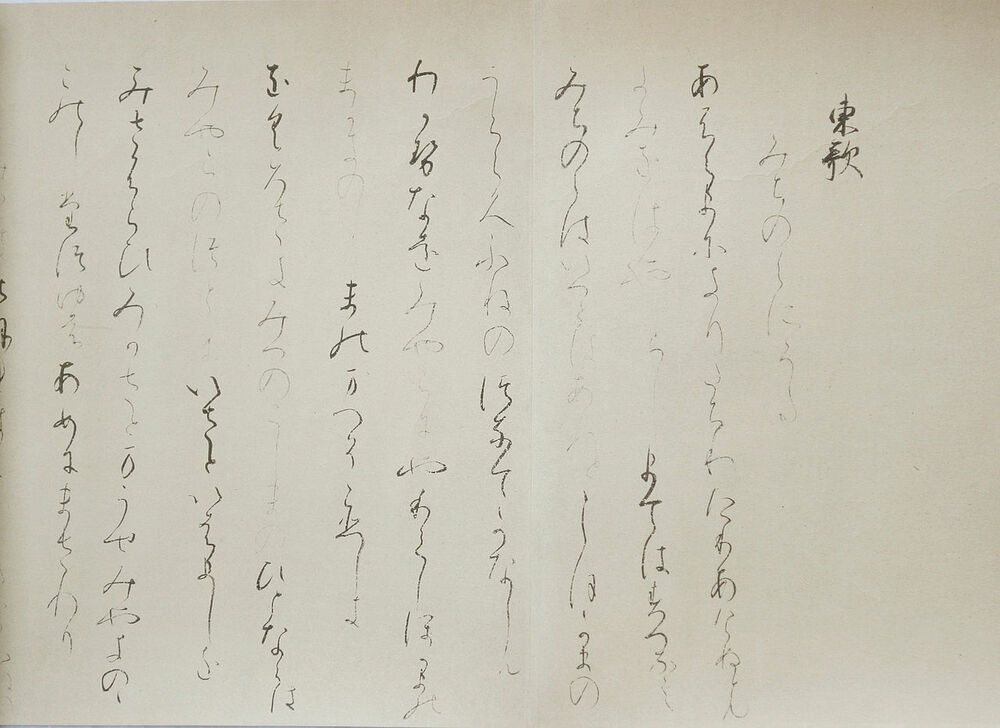 東歌
みちのくにうた
あふくまにきりたちわたりあけぬとも
きみをはやらしまてはすへなし
みちのくはいつくはあれとしほかまの
うらこくふねのつなてかなしも
わかせなをみやこにやりてしほかまの
まかきのしまのまつそこひしき
をくろさきみつのこしまのひとならは
みやこのつとにいさといはましを
みさふらひみかさとまうせみやきのゝ
このしたつゆはあめにまされり